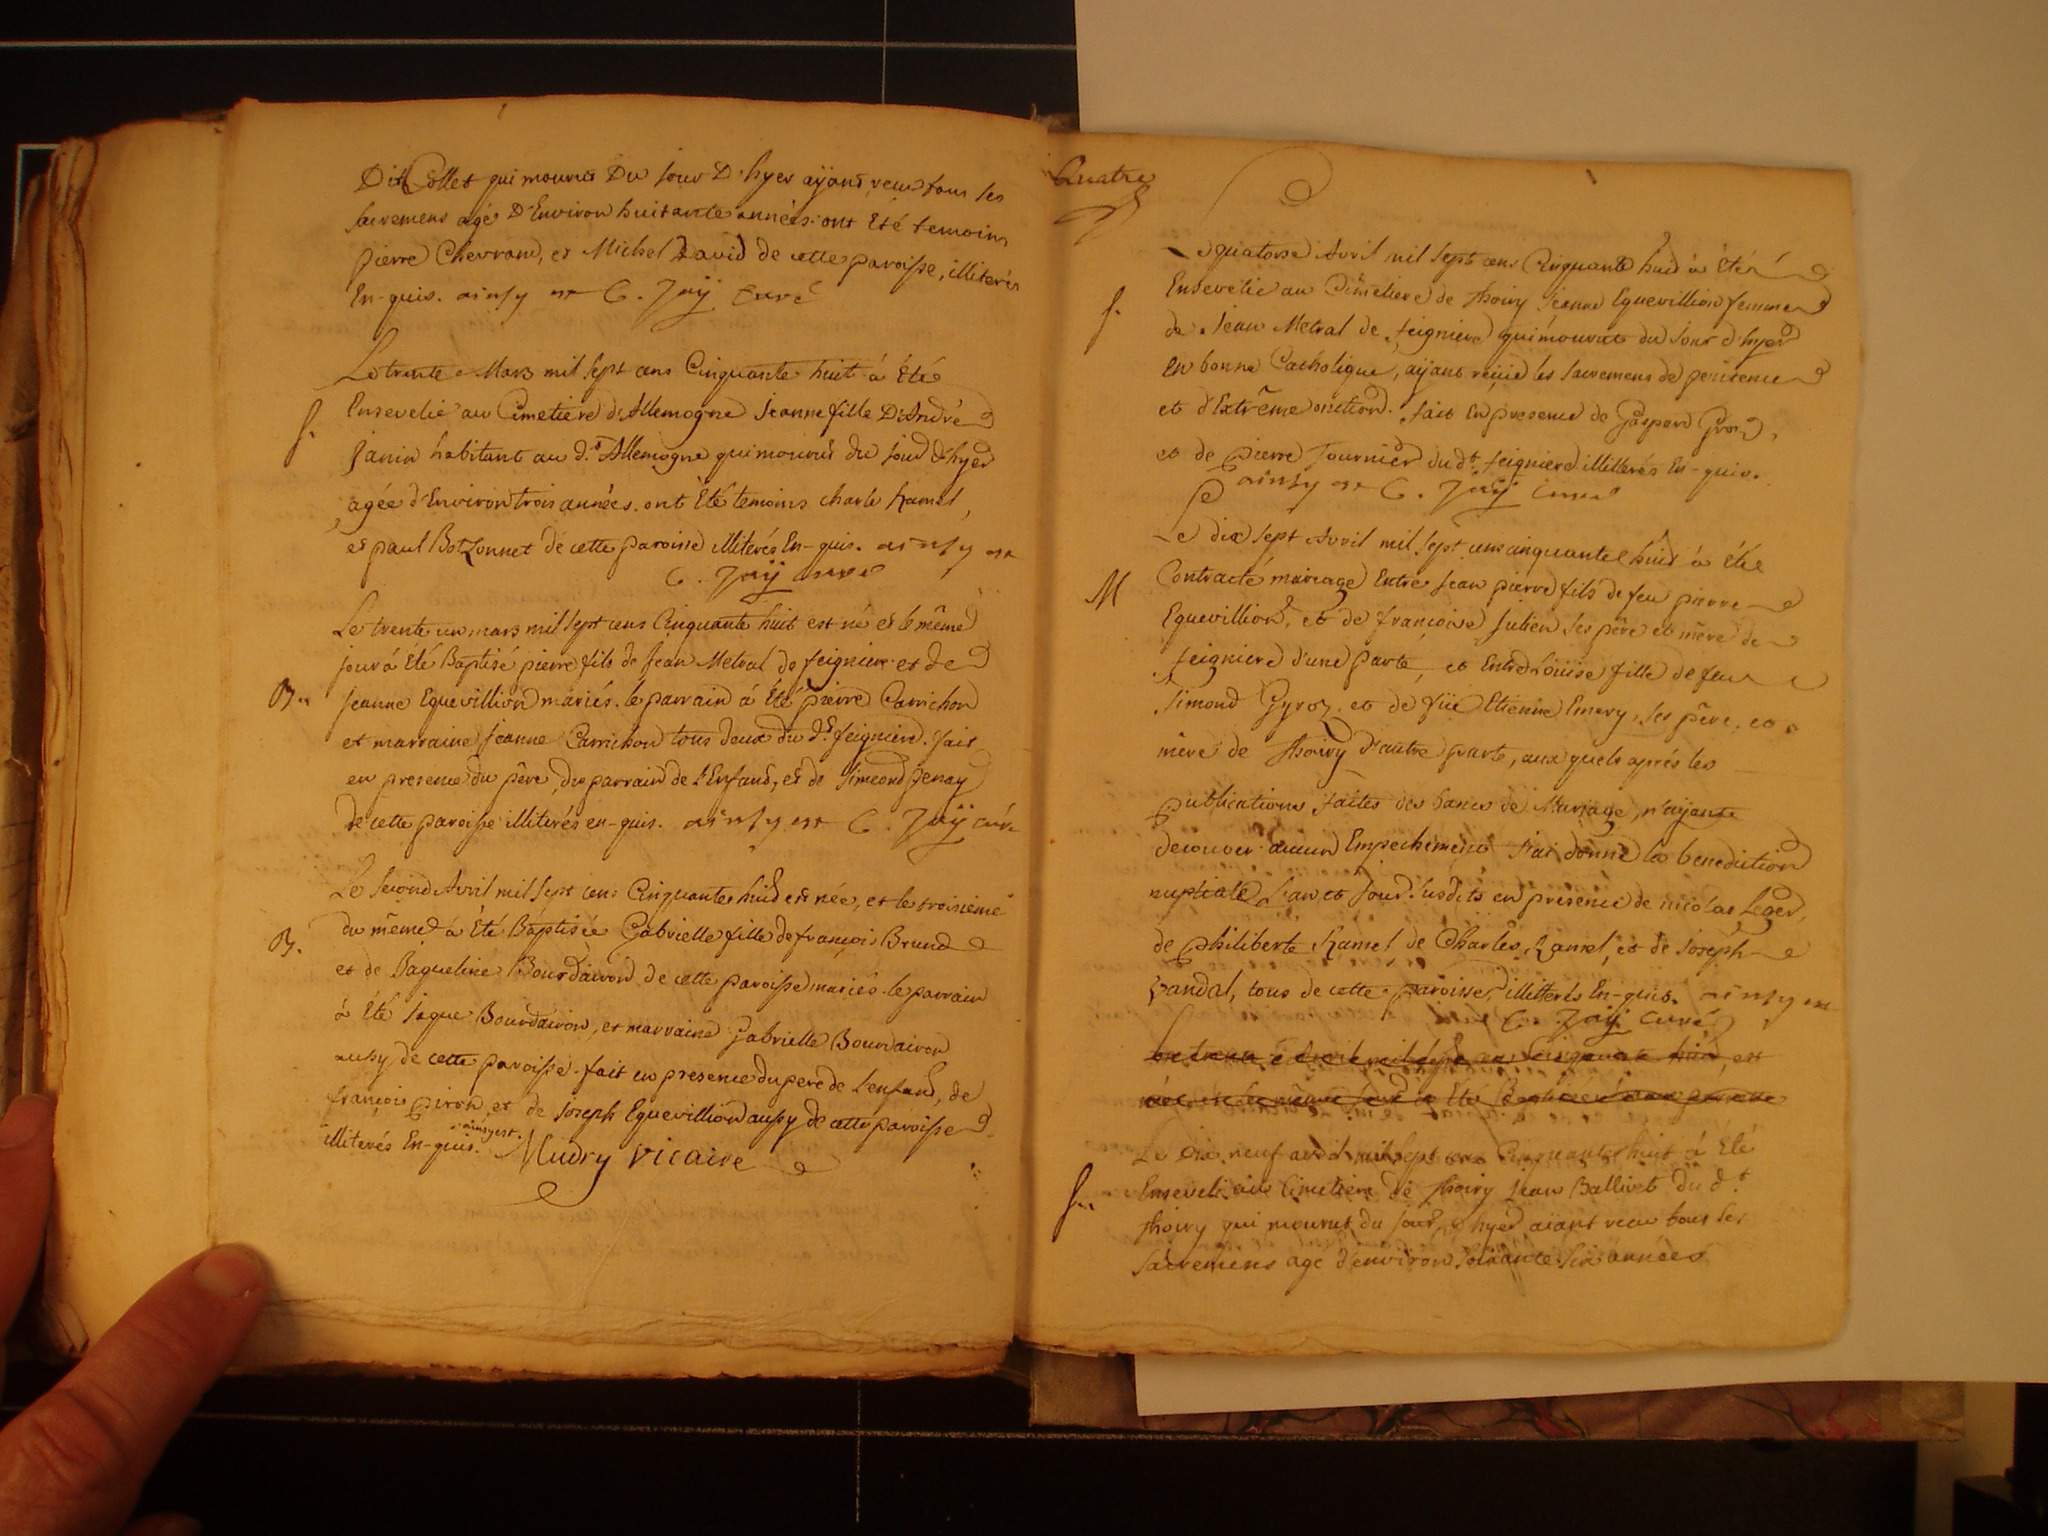 Dit Collet qui mourut Du jour D'hyer aÿant reçus tous les
sacremens agé D'Environ huitante années. ont Eté temoins
pierre Chevrand, et Michel David de cette paroisse, illiterés
En-quis. ainsy est C. Jaÿ Curé
Le trente Mars mil sept cens Cinquante huit à été
S. Ensevelie au Cimetiere d'Allemogne Jeanne fille D'André
Janin habitant au d.t Allemogne qui mourut du jour d'hyer
agée d'Environ trois années. ont Eté temoins charle Ramel,
et paul Botzonnet de cette paroisse illiterés En-quis. ainsy est
C. Jaÿ curé
Le trente un mars mil sept cens Cinquante huit est né et le même
jour à Eté Baptisé pierre fils de Jean Metral de feigniere et de
B.. Jeanne Equevillion mariés. le parrain à Eté pierre Carrichon
et marraine Jeanne Carrichon tous deux du d.t feigniere. fait
en presence du père, du parrain de l'Enfant, et de Simeond penay
de cette paroisse illiterés en-quis. ainsy est C. Jaÿ curé
Le second Avril mil sept cens Cinquante huit est née, et le troisième
B. du même à Eté Baptisée Gabrielle fille de françois Brund
et de Jaqueline Bourdairon de cette paroisse mariés. le parrain
à Eté Jaque Bourdairon, et marraine Gabrielle Bourdairon
aussy de cette paroisse. fait en presence du pere de l'enfant, de
françois piron et de Joseph Equevillion aussy de cette paroisse
illiterés En-quis. ainsy est. Mudry vicaire
Quatre
Le quatorse Avril mil sept cens Cinquante huit à Eté
S. Ensevelie au Cimetiere de thoiry Jeanne Equevillion femme
de Jean Metral de feigniere qui mourut du jour d'hyer
en bonne Catholique, aÿant reçue les sacremens de penitence
et d'Extrême onction. fait En presence de Gaspard Groz,
et de pierre fournier du d.t feigniere illitterés En-quis.
ainsy est C. Jaÿ curé
Le dix sept Avril mil sept cens cinquante huit à Eté
M Contracté mariage Entre Jean pierre fils de feu pierre
Equevillion, et de françoise Julien ses père et mère de
feigniere d'une parte, et Entre Loüise fille de feu
Simond Gyroz. et de füe Etienne Emery, ses père, et
mère de thoiry d'autre parte, aux quels aprés les
publications faites des bancs de Mariage, n'aÿant
decouver aucun Empechement J'ai donné la benediction
nuptiale L'an et Jour susdits en presence de nicolas Leger,
de philiberte Ramel de Charles Ramel, et de Joseph
vandal, tous de cette paroisse, illitterés En-quis. ainsy est
C. Jaÿ curé
avril mil sept cens Cinquante huit, est
née, et le même jour à Eté Baptisée
Le dix neuf avril mil sept cens Cinquante huit à Eté
S.. Enseveli au Cimetiere de thoiry Jean Ballivet du d.t
thoiry qui mourut du jour d'hyer aïant reçu tous les
sacremens agé d'environ soixante six années